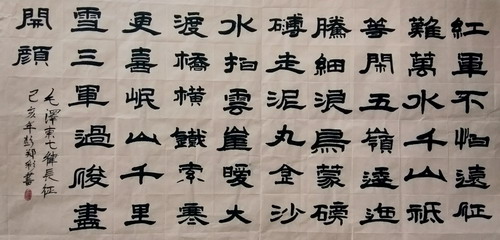 紅軍不怕遠征
難萬水千山祇
等閑五嶺逶迤
騰細浪烏蒙磅
礴走泥丸金沙
水拍雲崖暖大
渡橋橫鐵索寒
更喜岷山千里
雪三軍過後盡
開顏
毛澤東七律長征
己亥年彭書